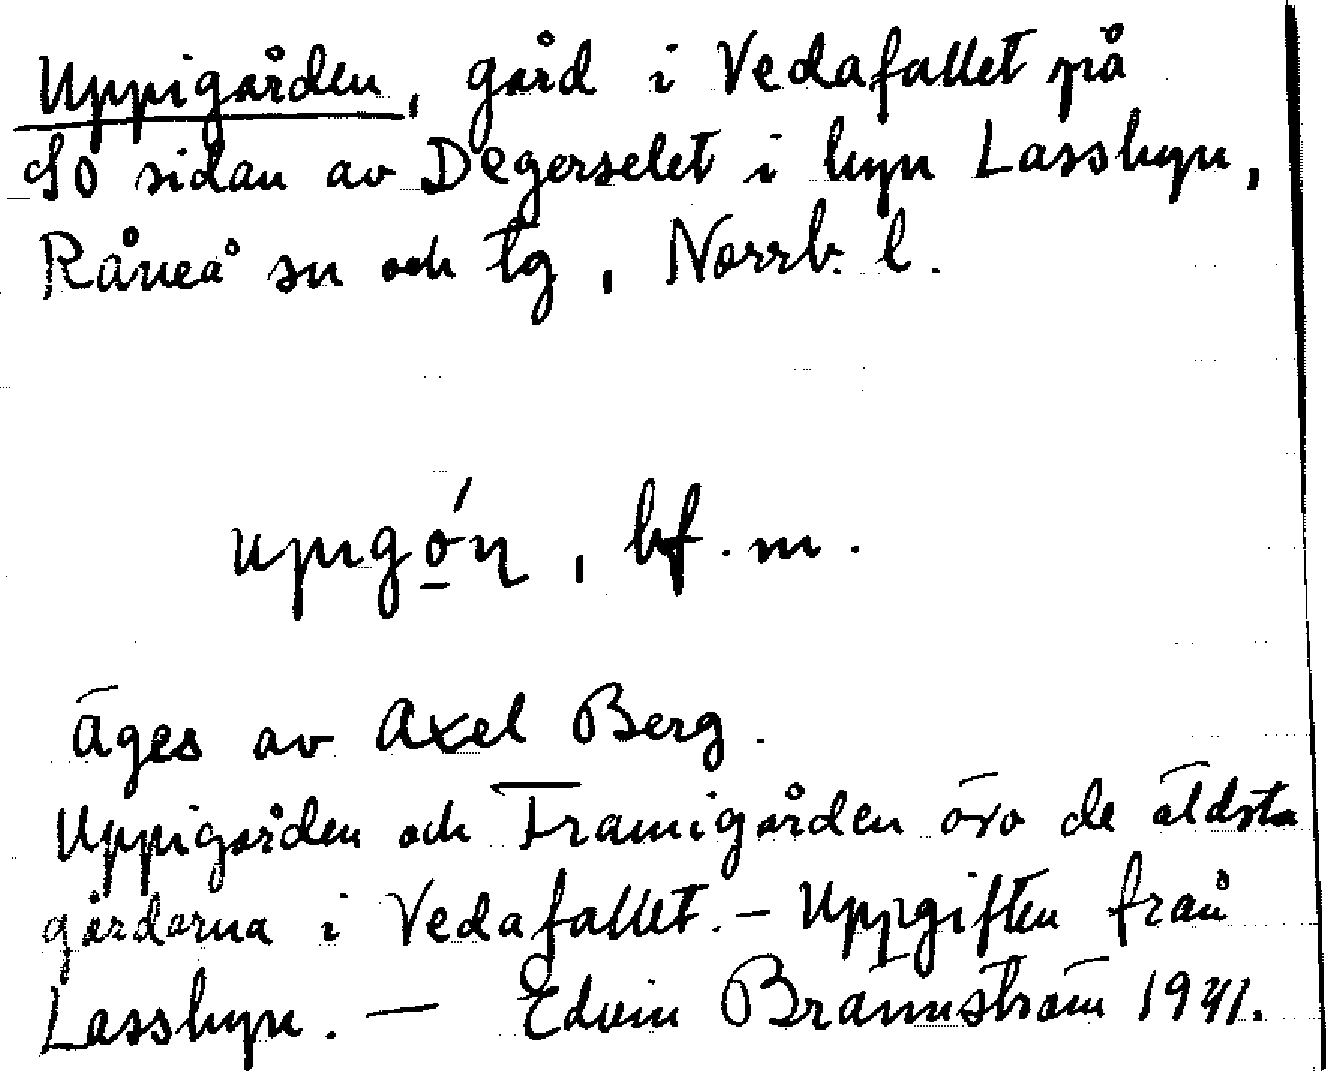 Uppigården, gård i Vedafallet på
SO sidan av Degerselet i byn Lassbyn,
Råneå sn och tg, Norrb. l.
upigǫ́n, bf. m.
Äges av Axel Berg.
Uppigården och Framigården äro de äldsta
gårdarna i Vedafallet. – Uppgiften från
Lassbyn. — Edvin Brännström 1941.